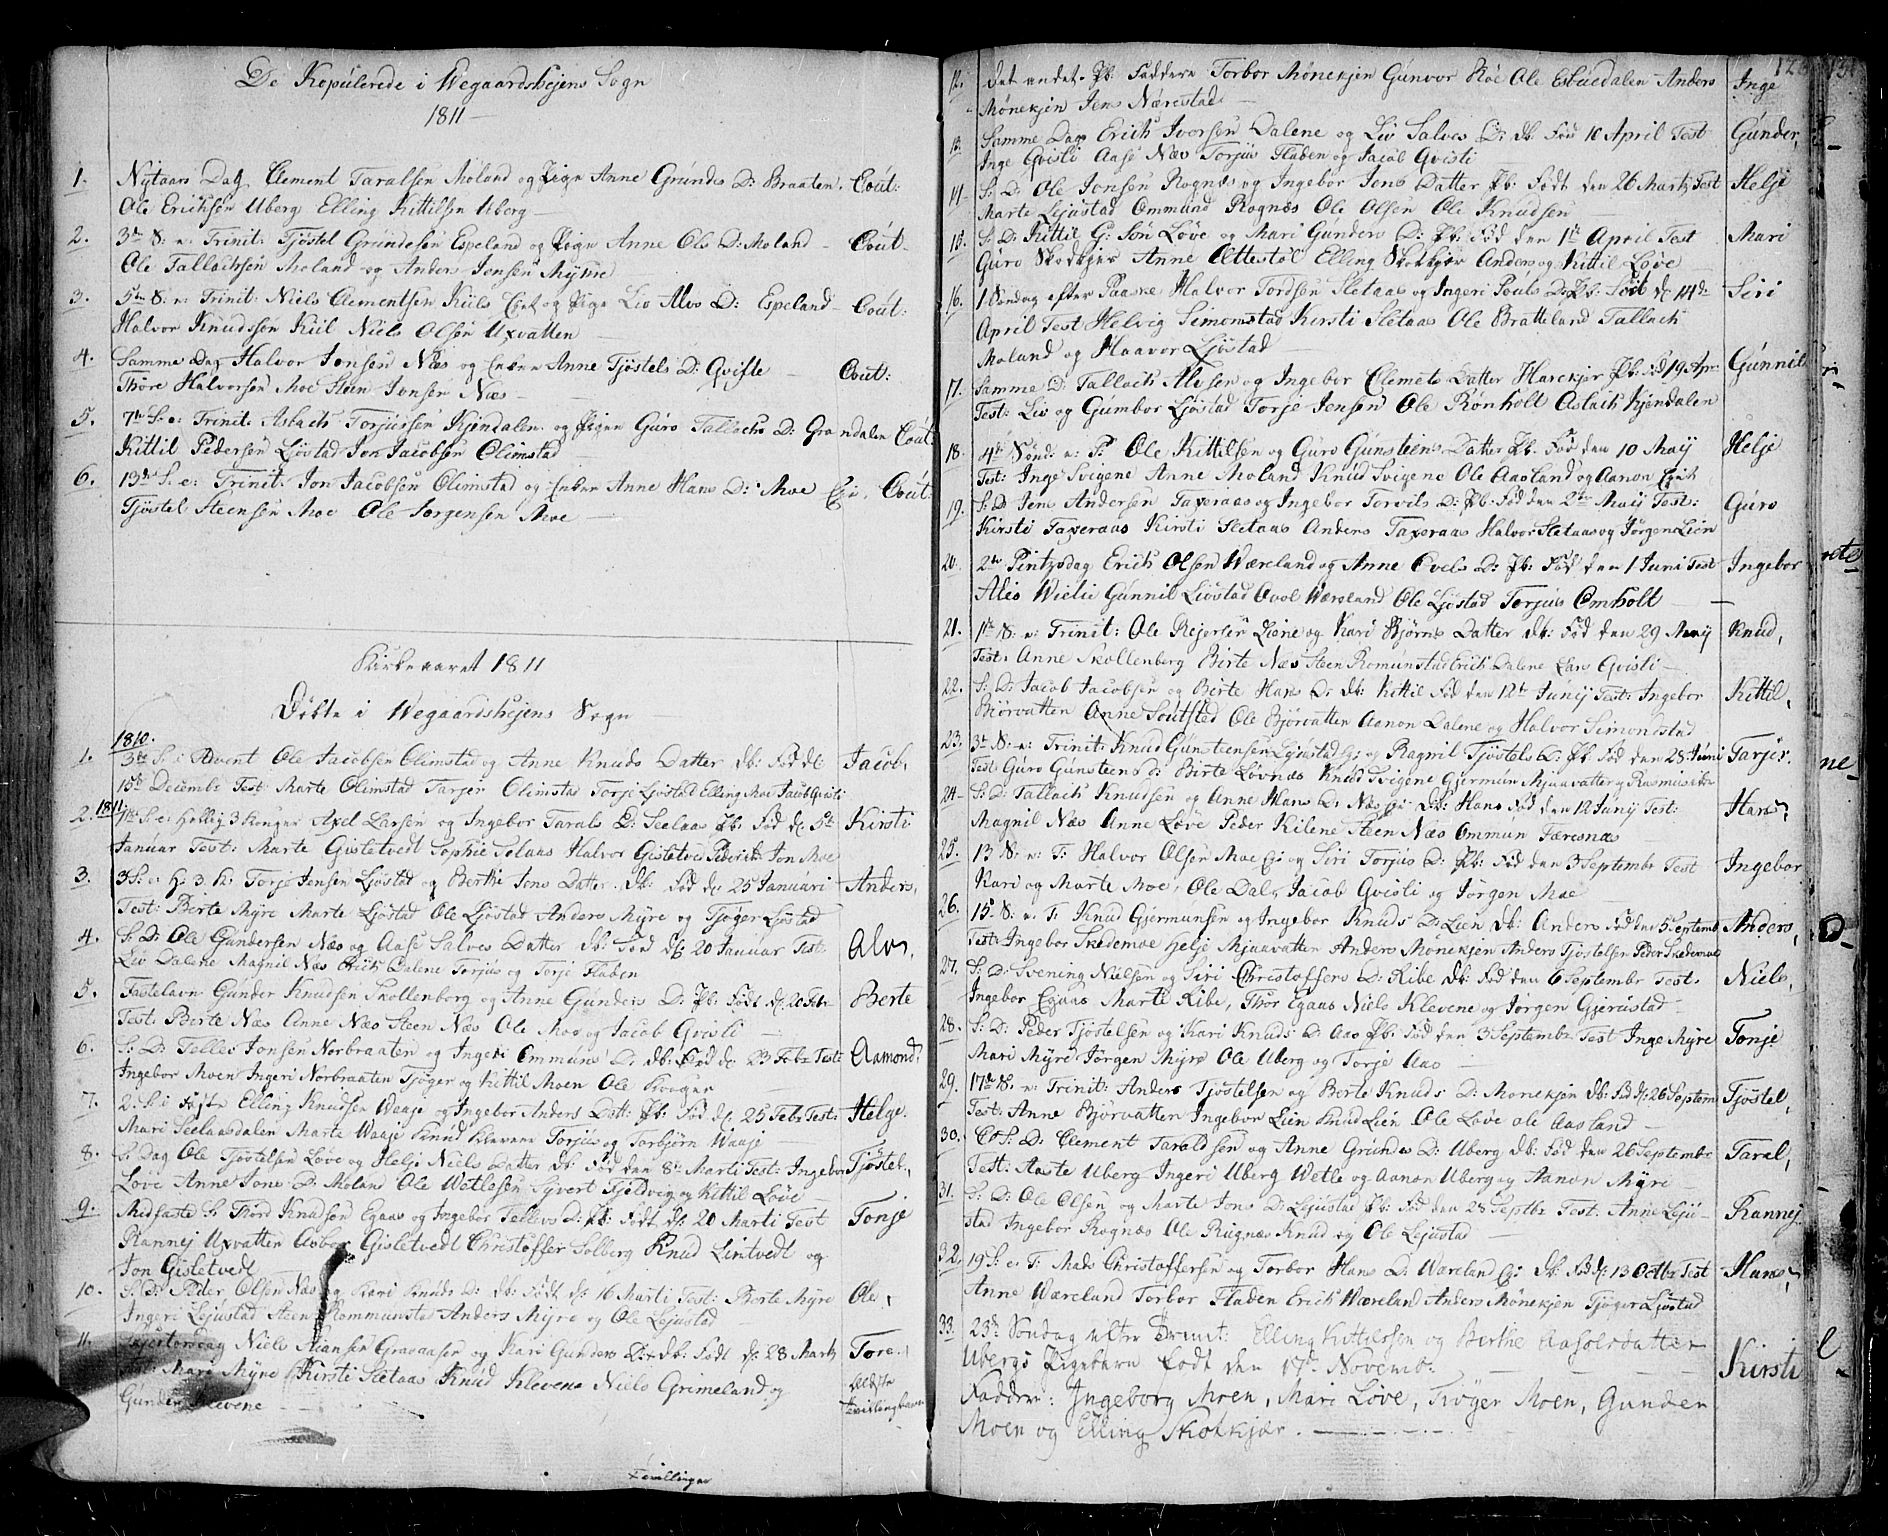 De Kopulerede i Wegaardshejens Sogn
1811
1. Nytaars Dag Clement Taralsen Moland og Pigen Anne Grundes D: Braaten. Cout:
Ole Erichsen Uberg Elling Kittilsen Uberg
2. 3de S: e: Trinit: Tjøstel Grundesen Espeland og Pigen Anne Ols D: Moland Cout.
Ole Tallachsen Moland og Anders Jensen Myhre
3. 5te S: e: Trinit: Niels Clementsen Kiils og Pigen Liv Alvs D: Espeland Cout:
Halvor Knudssen Kiil Niels Olsen Uxvatten
4. Samme Dag Halvor Jonsen Næs og Enken Anne Tjøstels D: Qviste Cout:
Thore Halvorsen Moe Steen Jonsen Næs
5. 7de S: e: Trinit: Aslach Torjussen Kjendalen og Pigen Guro Tallachs D: Grandalen Cout:
Kittil Pedersen Ljøstad Jon Jacobsen Olimstad
6. 13de S: e: Trinit: Jon Jacobsen Olimstad og Enken Anne Hans D: Moe Ej. Cout:
Tjøstel Steensen Moe Ole Jørgensen Moe
Kirkeaaret 1811
Døbte i Wegaardshejens Sogn
1810.
1. 3de S: i Advent Ole Jacobsen Olimstad og Anne Knuds Datter Db: Född: Jacob,
15de Decembr Test: Marte Olimstad Tarjer Olimstad Torje Ljøstad Elling Moe Jacob Qvisti
2. 1811 1te S: e: Hellig 3 Konger Axel Larsen og Ingebor Tarals D: Seelaas Pb: Fød d: 5te Kirsti
Januar Test: Marte Gisletvedt Sophie Selaas Halvor Gisletvedt Peder Jon Moe
3. 3 S: e: H: 3. K: Torje Jensen Ljøstad og Berthe Jons Datter. Db: Fød d: 25 Januari Anders,
Test: Berte Myre Marte Ljøstad Ole Ljøstad Anders Myre og Tjøger Ljøstad
4. S: D: Ole Gundersen Næs og Aase Salves Datter Db: Fød d: 20 Januar Test: Alv,
Liv Dalene Magnil Næs Erich Dalene Torjus og Torje Fladen
5. Fastelavn Gunder Knudsen Skollenborg og Anne Gunders D: Pb: Født d: 20 Febr Berte
Test: Berte Næs Anne Næs Steen Næs Ole Moe og Jacob Qvisti
6. S: D: Telles Jonsen Norbraaten og Ingeri Ommuns D: Db: Fød d: 23 Febr Test: Aamond.
Ingebor Moen Ingeri Norbraaten Tjøger og Kittil Moen Ole
7. 2: S: i Faste Elling Knudsen Waaje og Ingebor Anders Datt: Pb: Fød d: 25 Febr Test: Helge.
Mari Seelaasdalen Marte Waaje Knud Klevene Torjus og Torbjörn Waaje
8. S: Dag Ole Tjøstelsen Løve og Helje Niels Datter Db: Fød den 8: Marti Test: Ingebor Tjøstel,
Løve Anne Jons D: Moland Ole Wetlesen Syvert Fjeldvig og Kittil Løve
9. Midfaste S: Thord Knudsen Egaas og Ingebor Tellevs D: Pb: Født d: 20 Marti Test Tonje
Rannej Uxvatten Aabor Gisletvedt Christoffer Solberg Knud Lintvedt og
Jon Gisletvedt
10. S: D: Peder Olsen Næs og Kari Knuds D: Db: Født d: 16 Marti Test: Berte Myre Ole,
Ingeri Lejustad Steen Rommunstad Anders Myre og Ole Lejustad
11. Skjertorsdag Niels Stiansen Gravaasen og Kari Gunders D: Db: Født d: 28 Marti Tore.
Test: Mari Myre Kirsti Sletaas Knud Klevene Niels Grimeland og ældste
Gunder Klevene Tvillingbarn
Tvillinger
12. Det andet. Pb. Faddere Torbor Mønekjen Gunvor Röe Ole Esbuedalen Anders Inge
Mønekjen Jens Nærestad
13. Samme Dag Erich Iversen Dalene og Liv Salves D: Db. Fød 10 April Test Gunder,
Inge Qvisti Aase Næs Torjus Fladen og Jacob Qvisti
14. S: D: Ole Jonsen Rognæs og Ingebor Jons Datter Pb: Født den 26 Marti Test Helje
Marte Lejustad Ommund Rognæs Ole Olsen Ole Knudsen
15. S: D: Kittil G: Søn Løve og Mari Gunders D: Pb: Fød den 1te April Test Mari
Guro Skorkjær Anne Ættestøl Elling Skorkjær Anders og Kittil Løve
16. 1 Söndag efter Paaske Halvor Tordsen Sletaas og Ingeri Pouls D: Pb: Född d: 14de Siri
April Test Helvig Simonstad Kirsti Sletaas Ole Bratteland Tallach
Moland og Haavor Ljøstad
17. Samme D: Tallach Alvsen og Ingebor Clemets Datter Harekjær Pb: Fød 19 Apr: Gunnil
Test: Liv og Gumbor Ljøstad Torje Jensen Ole Rönholt Aslach Kjendalen
18. 4de Sønd: e: P: Ole Kittilsen og Guro Gunsteins Datter Pb. Fød den 10 Maij Helje
Test: Inge Svigene Anne Moland Knud Svigene Ole Aasland og Aanon
19. S: D Jens Andersen Taxeraas og Ingebor Torvils D: Pb: Fød den 2den Maij Test: Guro
Kirsti Taxeraas Kirsti Sletaas Anders Taxeraas Halvor Sletaas og Jørgen Lien
20. 2den Pintzedag Erich Olsen Wæreland og Anne Evels D: Pb: Fød den 1 Juni Test Ingebor
Alis Wielie Gunnil Liøstad Avol Wæreland Ole Ljøstad Torjus Omholt
21. 1te S: e: Trinit: Ole Rejersen Liene og Kari Bjørns Datter Db: Fød den 29 Maij Knud,
Test: Anne Skollenberg Birte Næs Steen Romunstad Erich Dalene Lars Qvisti
22. S: D: Jacob Jacobsen og Birte Hans D: Db: Kittil Fød den 12te Junij Test: Ingebor Kittil,
Biörvatten Anne Soutsted Ole Bjørvatten Aanon Dalene og Halvor Simondstad
23. 3de S: e: Trinit: Knud Gunsteensen Lejustad Ej: og Ragnil Tjøstels D: Pb: Fød den 25 Juni Tarjer.
Test: Guro Gunsteens D: Birte Løvnæs Knud Svigene Gjermun Mjaavatten og Rasmus
24. S: D: Tallach Knudsen og Anne Hans D: Næs Ej: Db: Hans Fød den 12 Junij Test: Hans,
Magnil Næs Anne Løve Peder Kilene Steen Næs Ommun Færesnæs
25. 13 S: e: T: Halvor Olsen Moe Ej: og Siri Torjus D: Pb: Fød den 3 Septembr Test Ingebor
Kari og Marte Moe, Ole Dal, Jacob Qvisti og Jørgen Moe
26. 15de S: e: T: Knud Gjermunsen og Ingebor Knuds D: Lien Db: Anders Fød den 5 Septemb Anders,
Test: Ingebor Skedemoe Helje Mjaavatten Anders Mønekjen Anders Tjøstelsen Peder Skedemoe
27. S: D: Svening Nielsen og Siri Christoffers D: Ribe Db: Fød den 6 Septembr Test. Niels,
Ingebor Egaas Marte Ribe, Thor Egaas Niels Klevene og Jørgen Gjerustad
28. S: D: Peder Tjøstelsen og Kari Knuds D: Aas Pb: Fød den 3 Septembr Test Inge Myre Tonje
Mari Myre Jørgen Myre Ole Uberg og Torje Aas
29. 17de S. e: Trinit: Anders Tjøstelsen og Berte Knuds D: Monekjen Db: Fød d: 26 Septem Tjøstel,
Test: Anne Bjørvatten Ingebor Lien Knud Lien Ole Løve Ole Aasland
30. S: D: Clement Taraldsen og Anne Grundes D: Uberg Db: Fød den 26 Septembr Taral,
Test: Aaste Uberg Ingeri Uberg Wetle og Aanon Uberg og Aanon Myre
31. S: D: Ole Olsen og Marte Jons D: Lejustad Pb: Fød den 28 Septbr Test: Anne Leju- Rannej
stad Ingebor Rognæs Ole Rugnæs Knud og Ole Lejustad
32. 19 S: e: T: Mads Christoffersen og Torbor Hans D: Wæreland Ej: Db: Fød d: 13 Octbr Test Hans,
Anne Wæreland Torbor Fladen Erich Wæreland Anders Mønekjen Tjøger Ljøstad
33. 23de Søndag efter Trinit: Elling Kittilsen og Berthe Aasolsdatter
Ubergs Pigebarn født den 17de Novemb: Kirsti
Faddere: Ingeborg Moen, Mari Løve, Trøger Moen, Gunder
Moen og Elling Skorkjær.